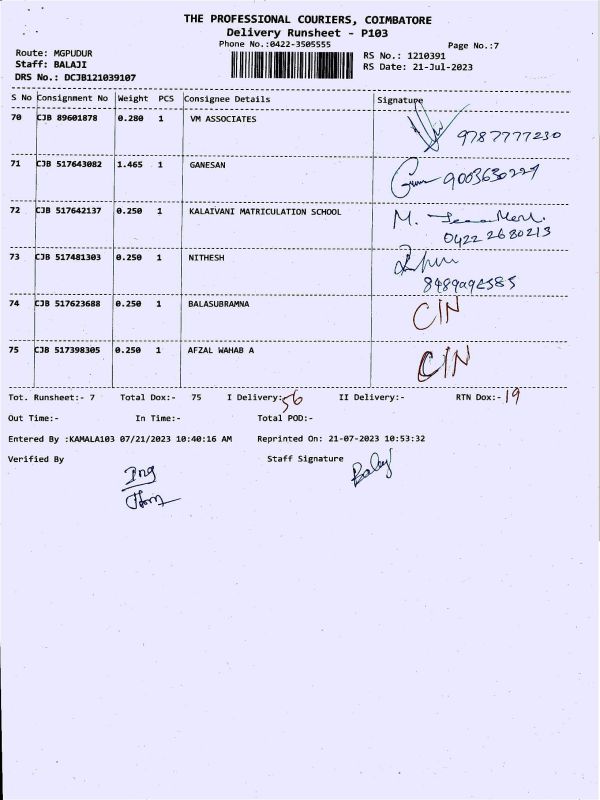 THE PROFESSIONAL COURIERS, COIMBATORE
Delivery Runsheet - P103
Phone No.:0422-3505555
Page No.:7
Route: MGPUDUR
RS No.: 1210391
Staff: BALAJI
RS Date: 21-Jul-2023
DRS No.: DCJB121039107
S No Consignment No Weight PCS Consignee Details Signature
70 CJB 89601878 0.280 1 VM ASSOCIATES
9787777230
71 CJB 517643082 1.465 1 GANESAN
9003630227
72 CJB 517642137 0.250 1 KALAIVANI MATRICULATION SCHOOL M.
0422 2680213
73 CJB 517481303 0.250 1 NITHESH
74 CJB 517623688 0.250 1 BALASUBRAMNA CIN
75 CJB 517398305 0.250 1 AFZAL WAHAB A CIN
Tot. Runsheet:- 7 Total Dox:- 75 I Delivery:- 56 II Delivery:- RTN Dox:- 19
Out Time:- In Time:- Total POD:-
Entered By :KAMALA103 07/21/2023 10:40:16 AM Reprinted On: 21-07-2023 10:53:32
Verified By Staff Signature